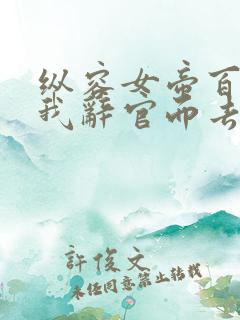 纵容女帝百
我辞官而去
許俊文
未经同意禁止转载